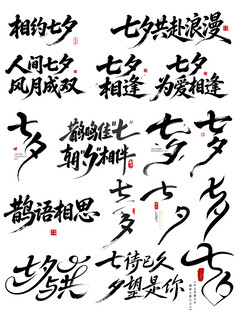 相约七夕
七夕共赴浪漫
人间七夕
风月成双
七夕
相逢
七夕
为爱相逢
七夕
鹊鸣佳“七”
朝“夕”相伴
七夕
七夕
鹊语相思
七夕
七夕
七夕
七夕与共
七待已久
夕望是你
七夕